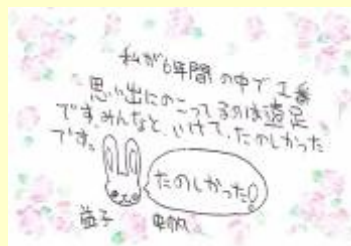 私が6年間の中で1番
思い出にのこってるのは遠足
です。みんなと、いけて、たのしかった
です。
たのしかった!
益子